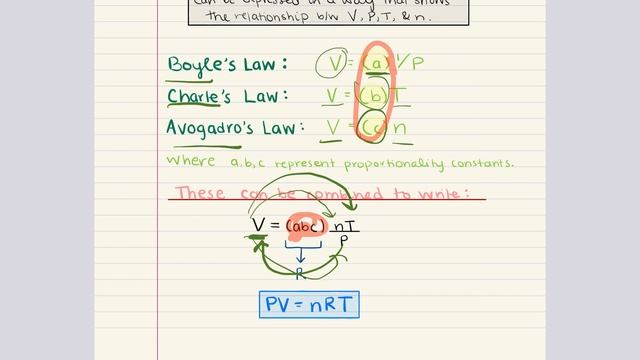 can be expressed in a way that shows
the relationship b/w V, P, T, & n.
Boyle's Law: V = (a) 1/P
Charle's Law: V = (b) T
Avogadro's Law: V = (c) n
where a,b,c represent proportionality constants.
These can be combined to write:
V = (abc) nT
P
R
PV = nRT